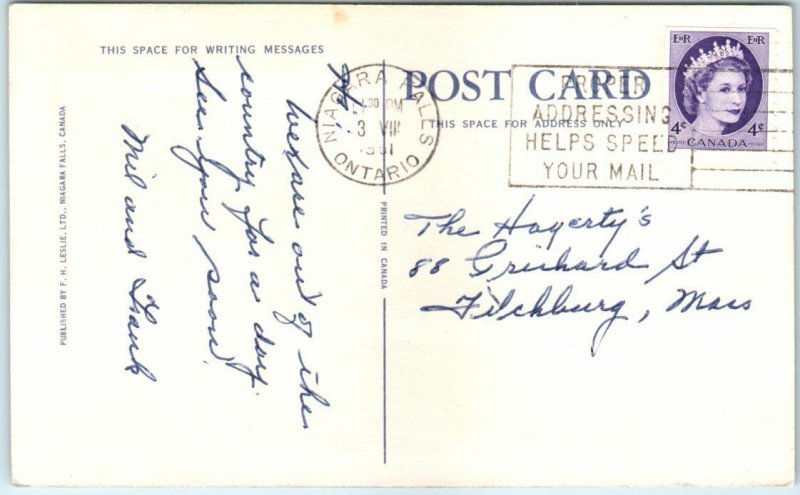 THIS SPACE FOR WRITING MESSAGES
Hi.
We are out of the
country for a day.
See you soon.
Mil and Frank
PUBLISHED BY F. H. LESLIE, LTD., NIAGARA FALLS, CANADA
PRINTED IN CANADA
POST CARD
THIS SPACE FOR ADDRESS ONLY
NIAGARA FALLS
30 PM
3 VIII
1961
ONTARIO
PROPER
ADDRESSING
HELPS SPEED
YOUR MAIL
EIIR EIIR
4c 4c
CANADA
The Hagerty's
88 St
Fitchburg, Mass